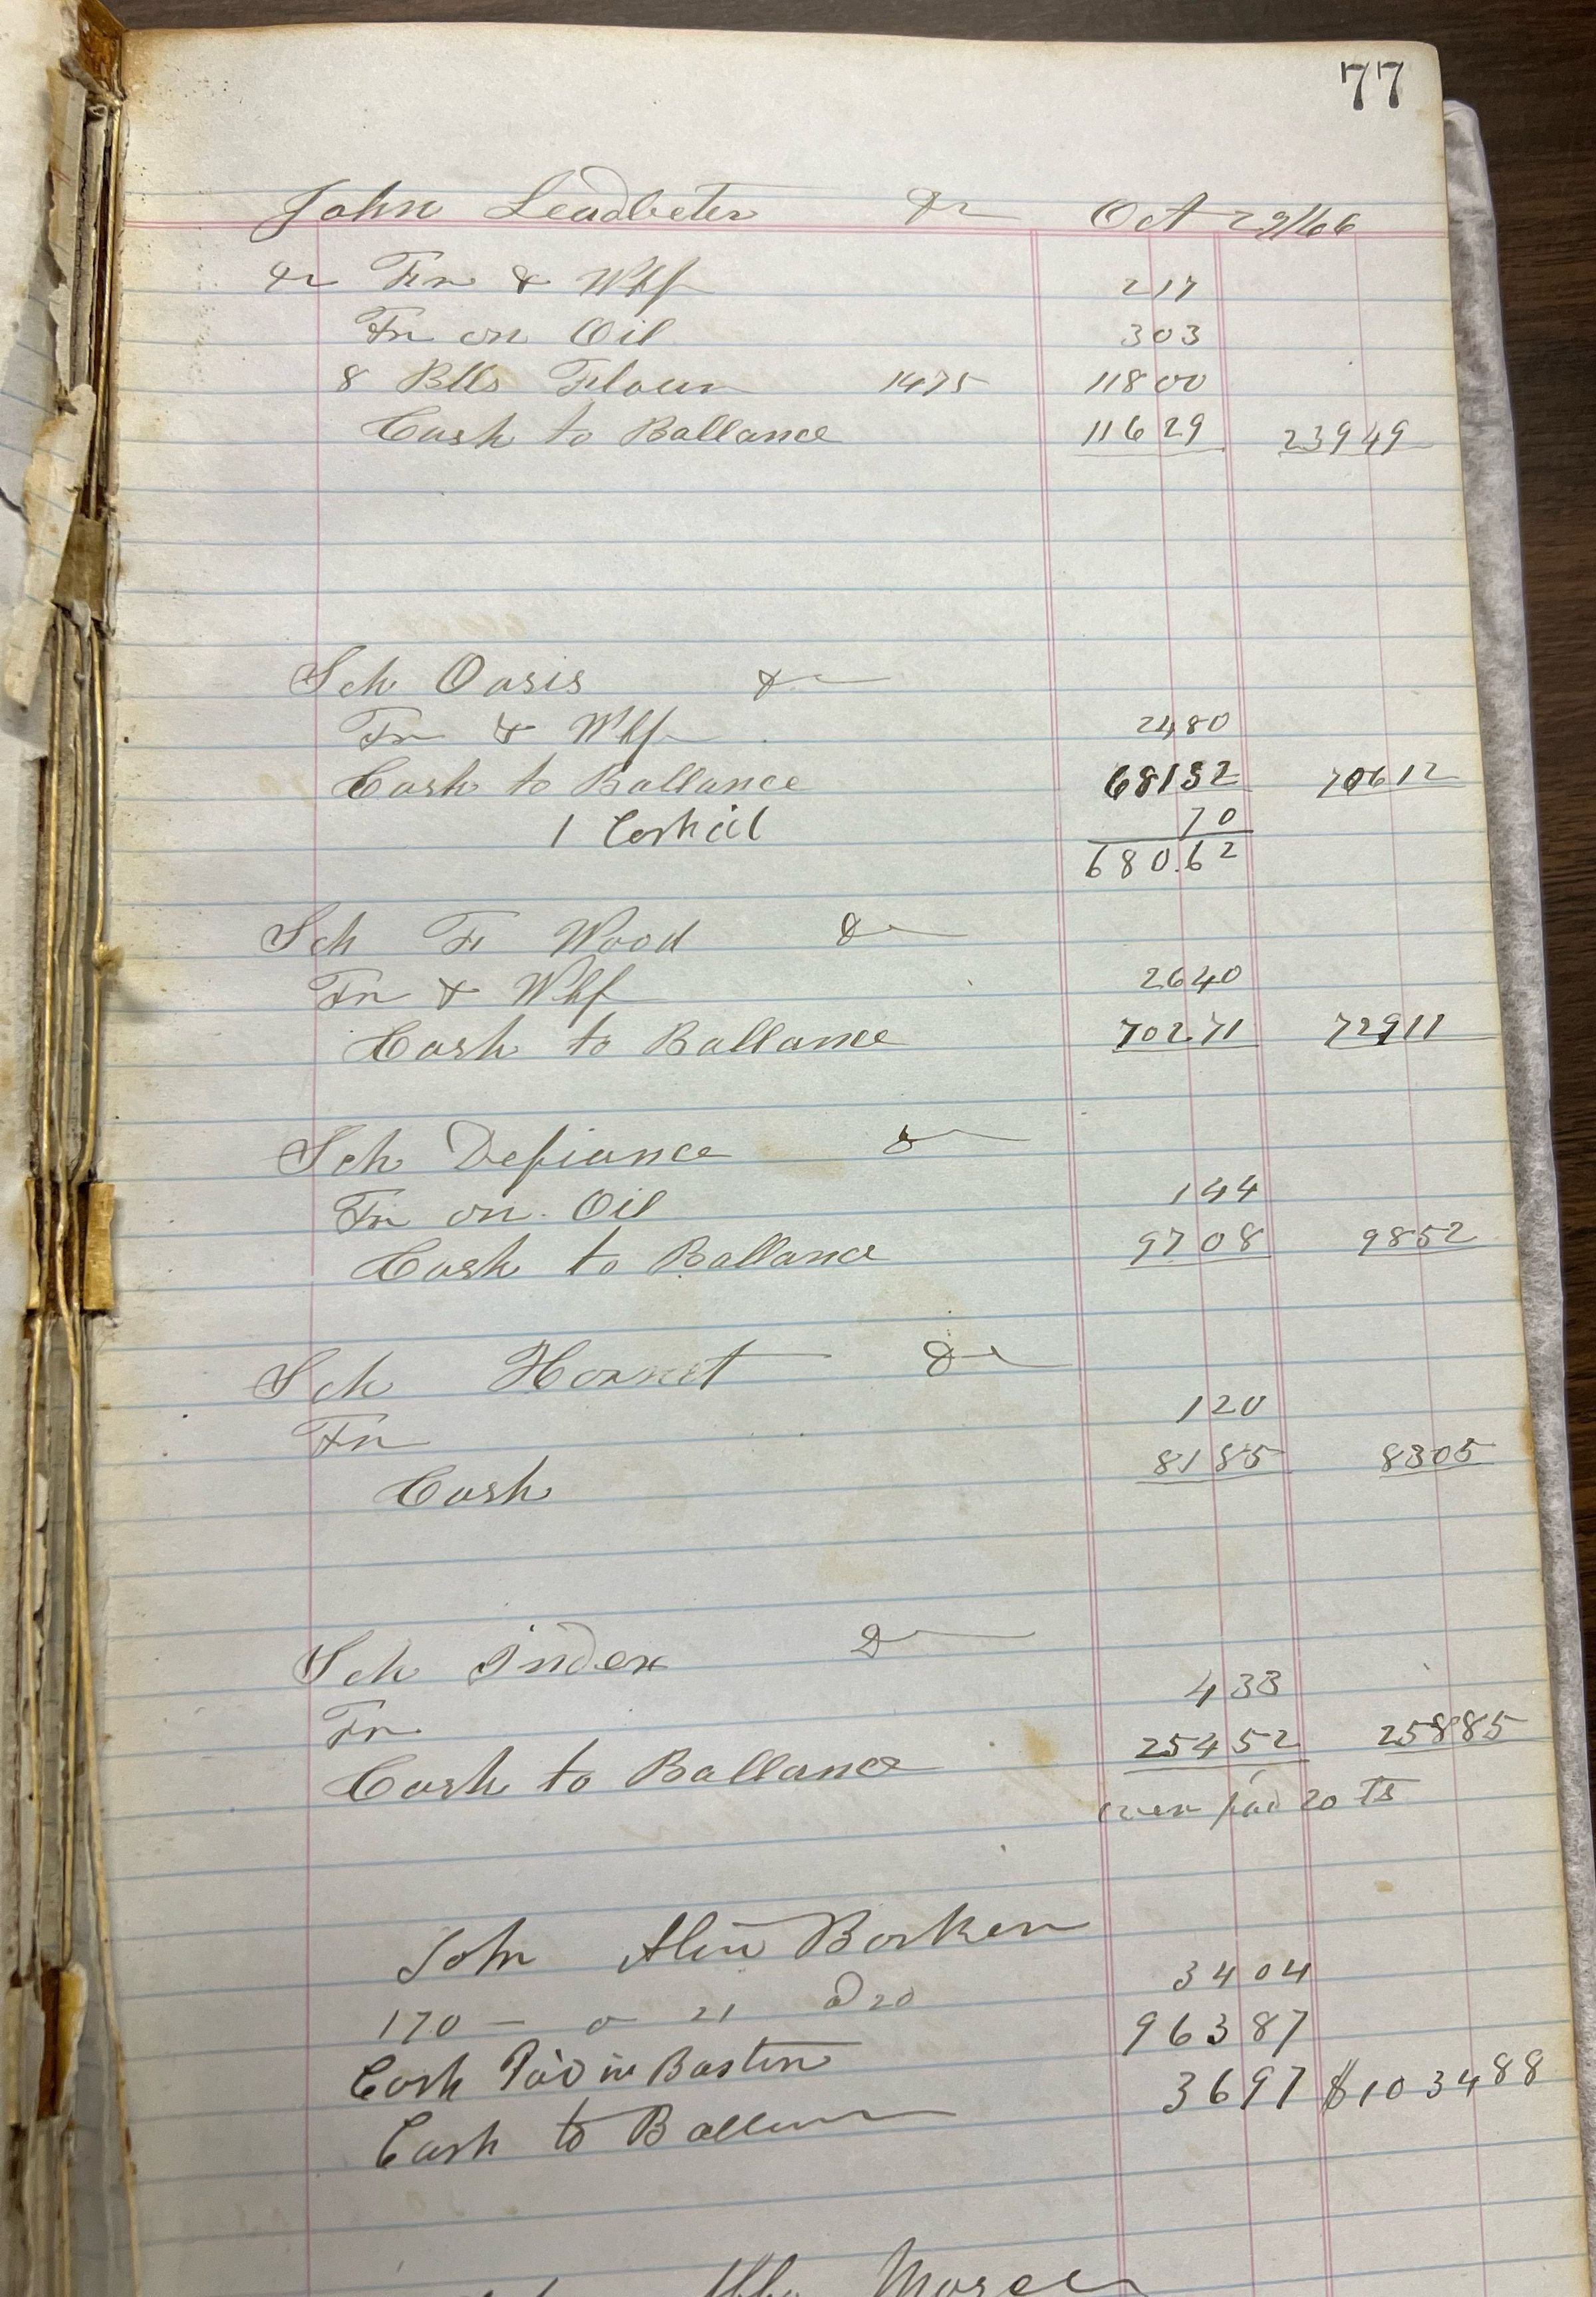 77
John Leadbeter Dr Oct 29/66
Dr Frn & Whf 217
Frn on Oil 303
8 Blls Flour 1475 11800
Cash to Ballance 11629 23949
Sch Oasis Dr
Frn & Whf 2480
Cash to Ballance 68132 70612
1 70
680.62
Sch F Wood Dr
Frn & Whf 2640
Cash to Ballance 70271 72911
Sch Defiance Dr
Frn on Oil 144
Cash to Ballance 9708 9852
Sch Hornet Dr
Frn 120
Cash 8185 8305
Sch Index Dr
Frn 433
Cash to Ballance 25452 25885
over paid 20
Barker
170 — 21 20 3404
Cash Paid in Boston 96387
Cash to Ballance 3697 $103488